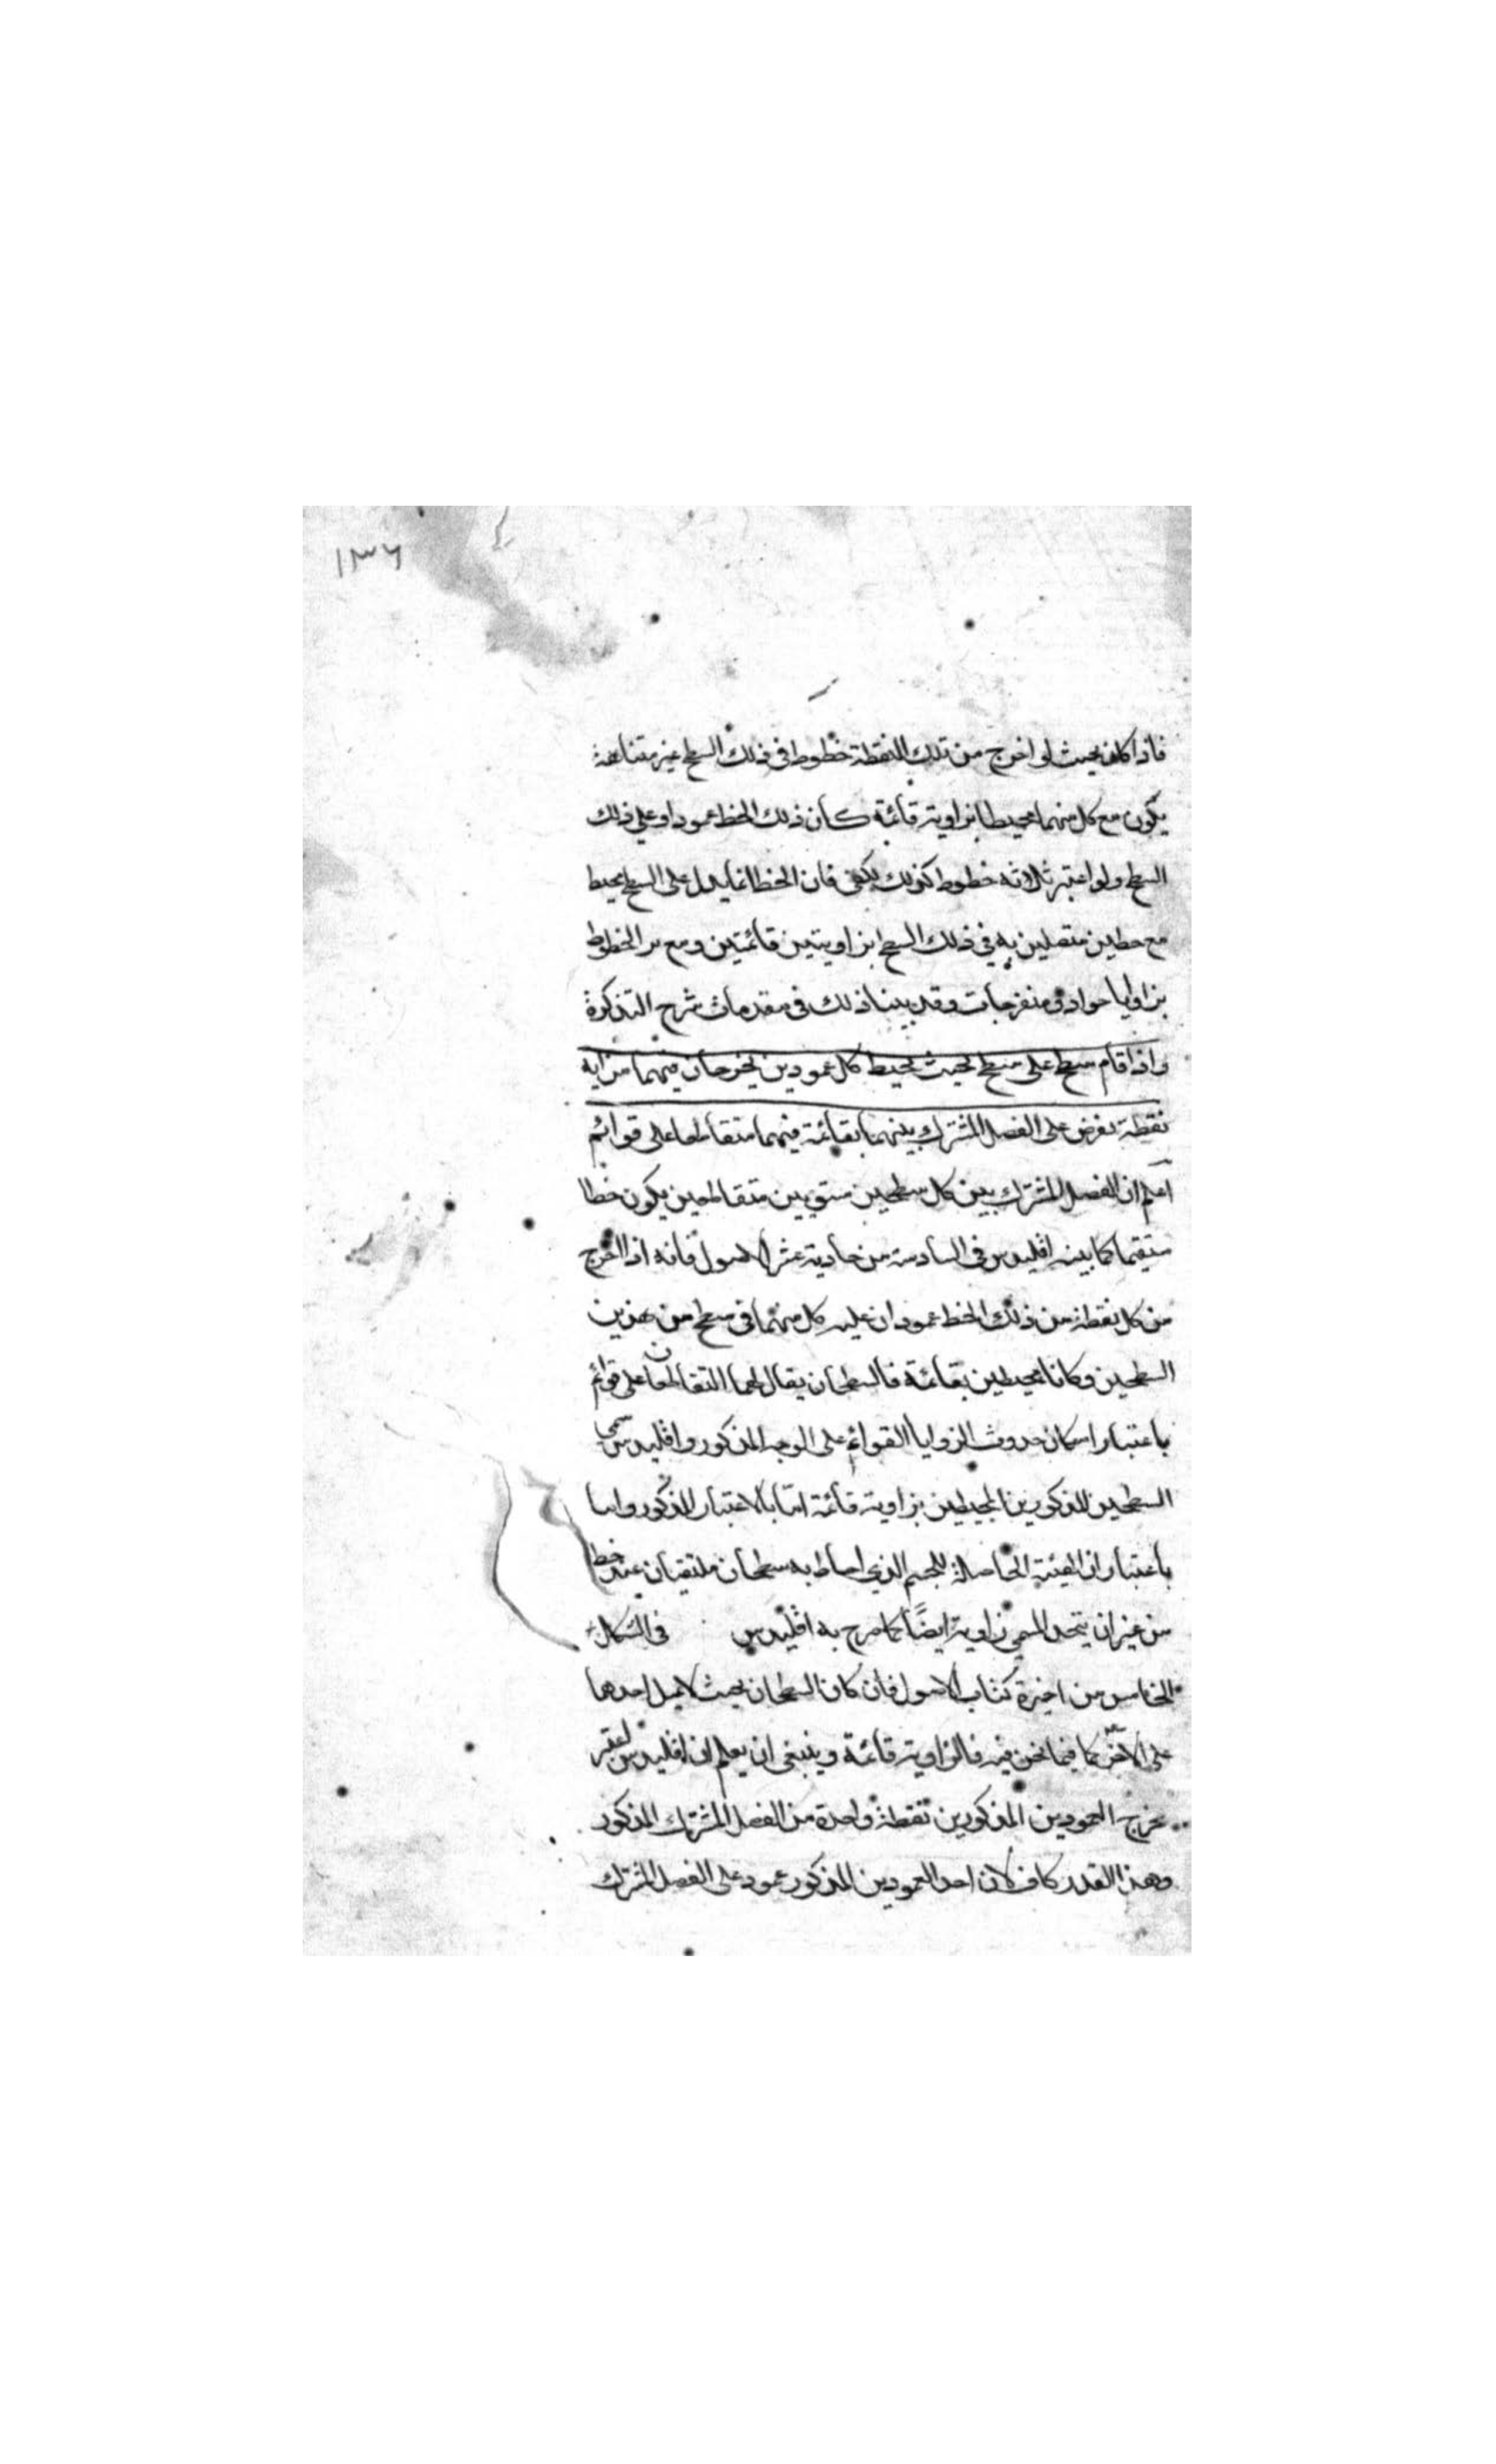 ١٣٦
فاذا كان بحيث لو اخرج من تلك النقطة خطوط فى ذلك السطح غير متناهية
يكون مع كل منهما محيطا بزاوية قائمة كان ذلك الخط عمودا وعلى ذلك
السطح ولو اعتبر ثلاثه خطوط كذلك يكفى فان الخط المايل على السطح يحيط
مع خطين متصلين به فى ذلك السطح بزاويتين قائمتين ومع سر الخطوط
بزوايا حواد و منفرجات وقد بينا ذلك فى مقدمات شرح التذكرة
واذا قام سطح على سطح بحيث يحيط كل عمودين يخرجان فيهما من اية
نقطة تفرض على الفصل المشترك بينهما بقائمة فيهما متقاطعا على قوائم
اعلم ان الفصل المشترك بين كل سطحين مستويين متقاطعين يكون خطا
مستقيما كما بينه اقليدس فى السادسة من حادية عشر الاصول فانه اذا اخرج
من كل نقطة من ذلك الخط عمودان عليه كل منهما فى سطح من هذين
السطحين وكانا محيطين بقائمة فالسطحان يقال لهما المتقاطعان على قوائم
باعتبار امكان حدوث الزوايا القوائم على الوجه المذكور واقليدس سمى
السطحين المذكورين المحيطين بزاوية قائمة اما بالاعتبار المذكور واما
باعتبار ان الهيئة الحاصلة للجسم الذى احاط به سطحان ملتقيان عند خط
من غير ان يتحد المسمى زاوية ايضًا كما صرح به اقليدس فى الشكل
الخامس من اخيرة كتاب الاصول فان كان السطحان بحيث لا يميل احدهما
على الاخر كما فيما نحن فيه فالزاوية قائمة وينبغى ان يعلم ان اقليدس اعتبر
مخرج العمودين المذكورين نقطة واحدة من الفصل المشترك المذكور
وهذا القدر كاف لان احد العمودين المذكور عمود على الفصل المشترك